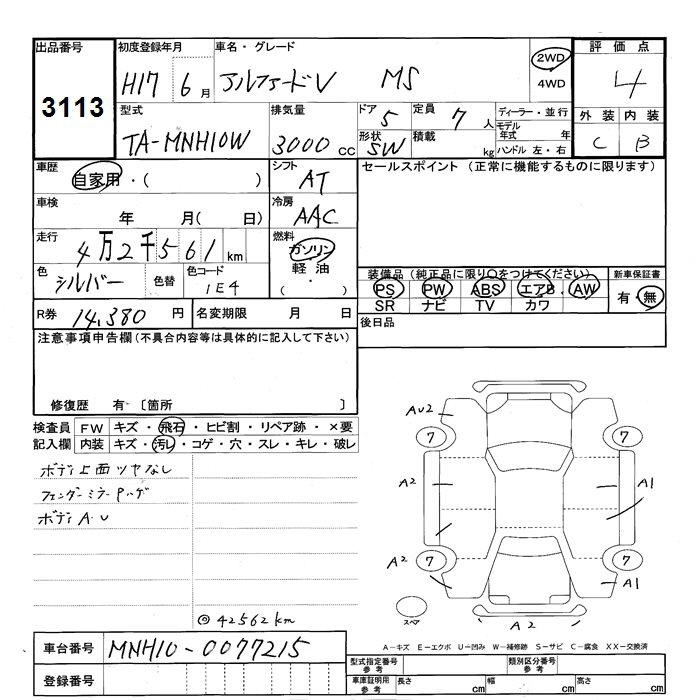 出品番号 初度登録年月 車名・グレード 評価点
3113 H17 6月 アルファードV MS 2WD 4WD 4
型式 排気量 ドア 5 定員 7人 ディーラー・並行 外装 内装
TA-MNH10W 3000cc 形状 SW 積載 kg モデル年式 年 ハンドル 左・右 C B
車歴 シフト セールスポイント (正常に機能するものに限ります)
自家用・( ) AT
車検 冷房
年 月( 日) AAC
走行 燃料
4万2千561km ガソリン
色 色替 色コード 軽油 装備品(純正品に限り○をつけてください) 新車保証書
シルバー 1E4 ( ・ ) PS PW ABS エアB AW 有・無
SR ナビ TV カワ
R券 14,380円 名変期限 月 日 後日品
注意事項申告欄(不具合内容等は具体的に記入して下さい)
修復歴 有 〔箇所 〕
検査員 FW キズ・飛石・ヒビ割・リペア跡・×要
記入欄 内装 キズ・汚レ・コゲ・穴・スレ・キレ・破レ
ボディ上面ツヤなし
フェンダーミラーPハゲ
ボディA.U
◎42562km
AU2
7 7
A2 A1
A2 7 7 A1
スペア A2
A-キズ E-エクボ U-凹み W-補修跡 S-サビ C-腐食 XX-交換済
車台番号 MNH10-0077215
登録番号
型式指定番号 参考 類別区分番号 参考
車庫証明用 参考 長さ cm 幅 cm 高さ cm